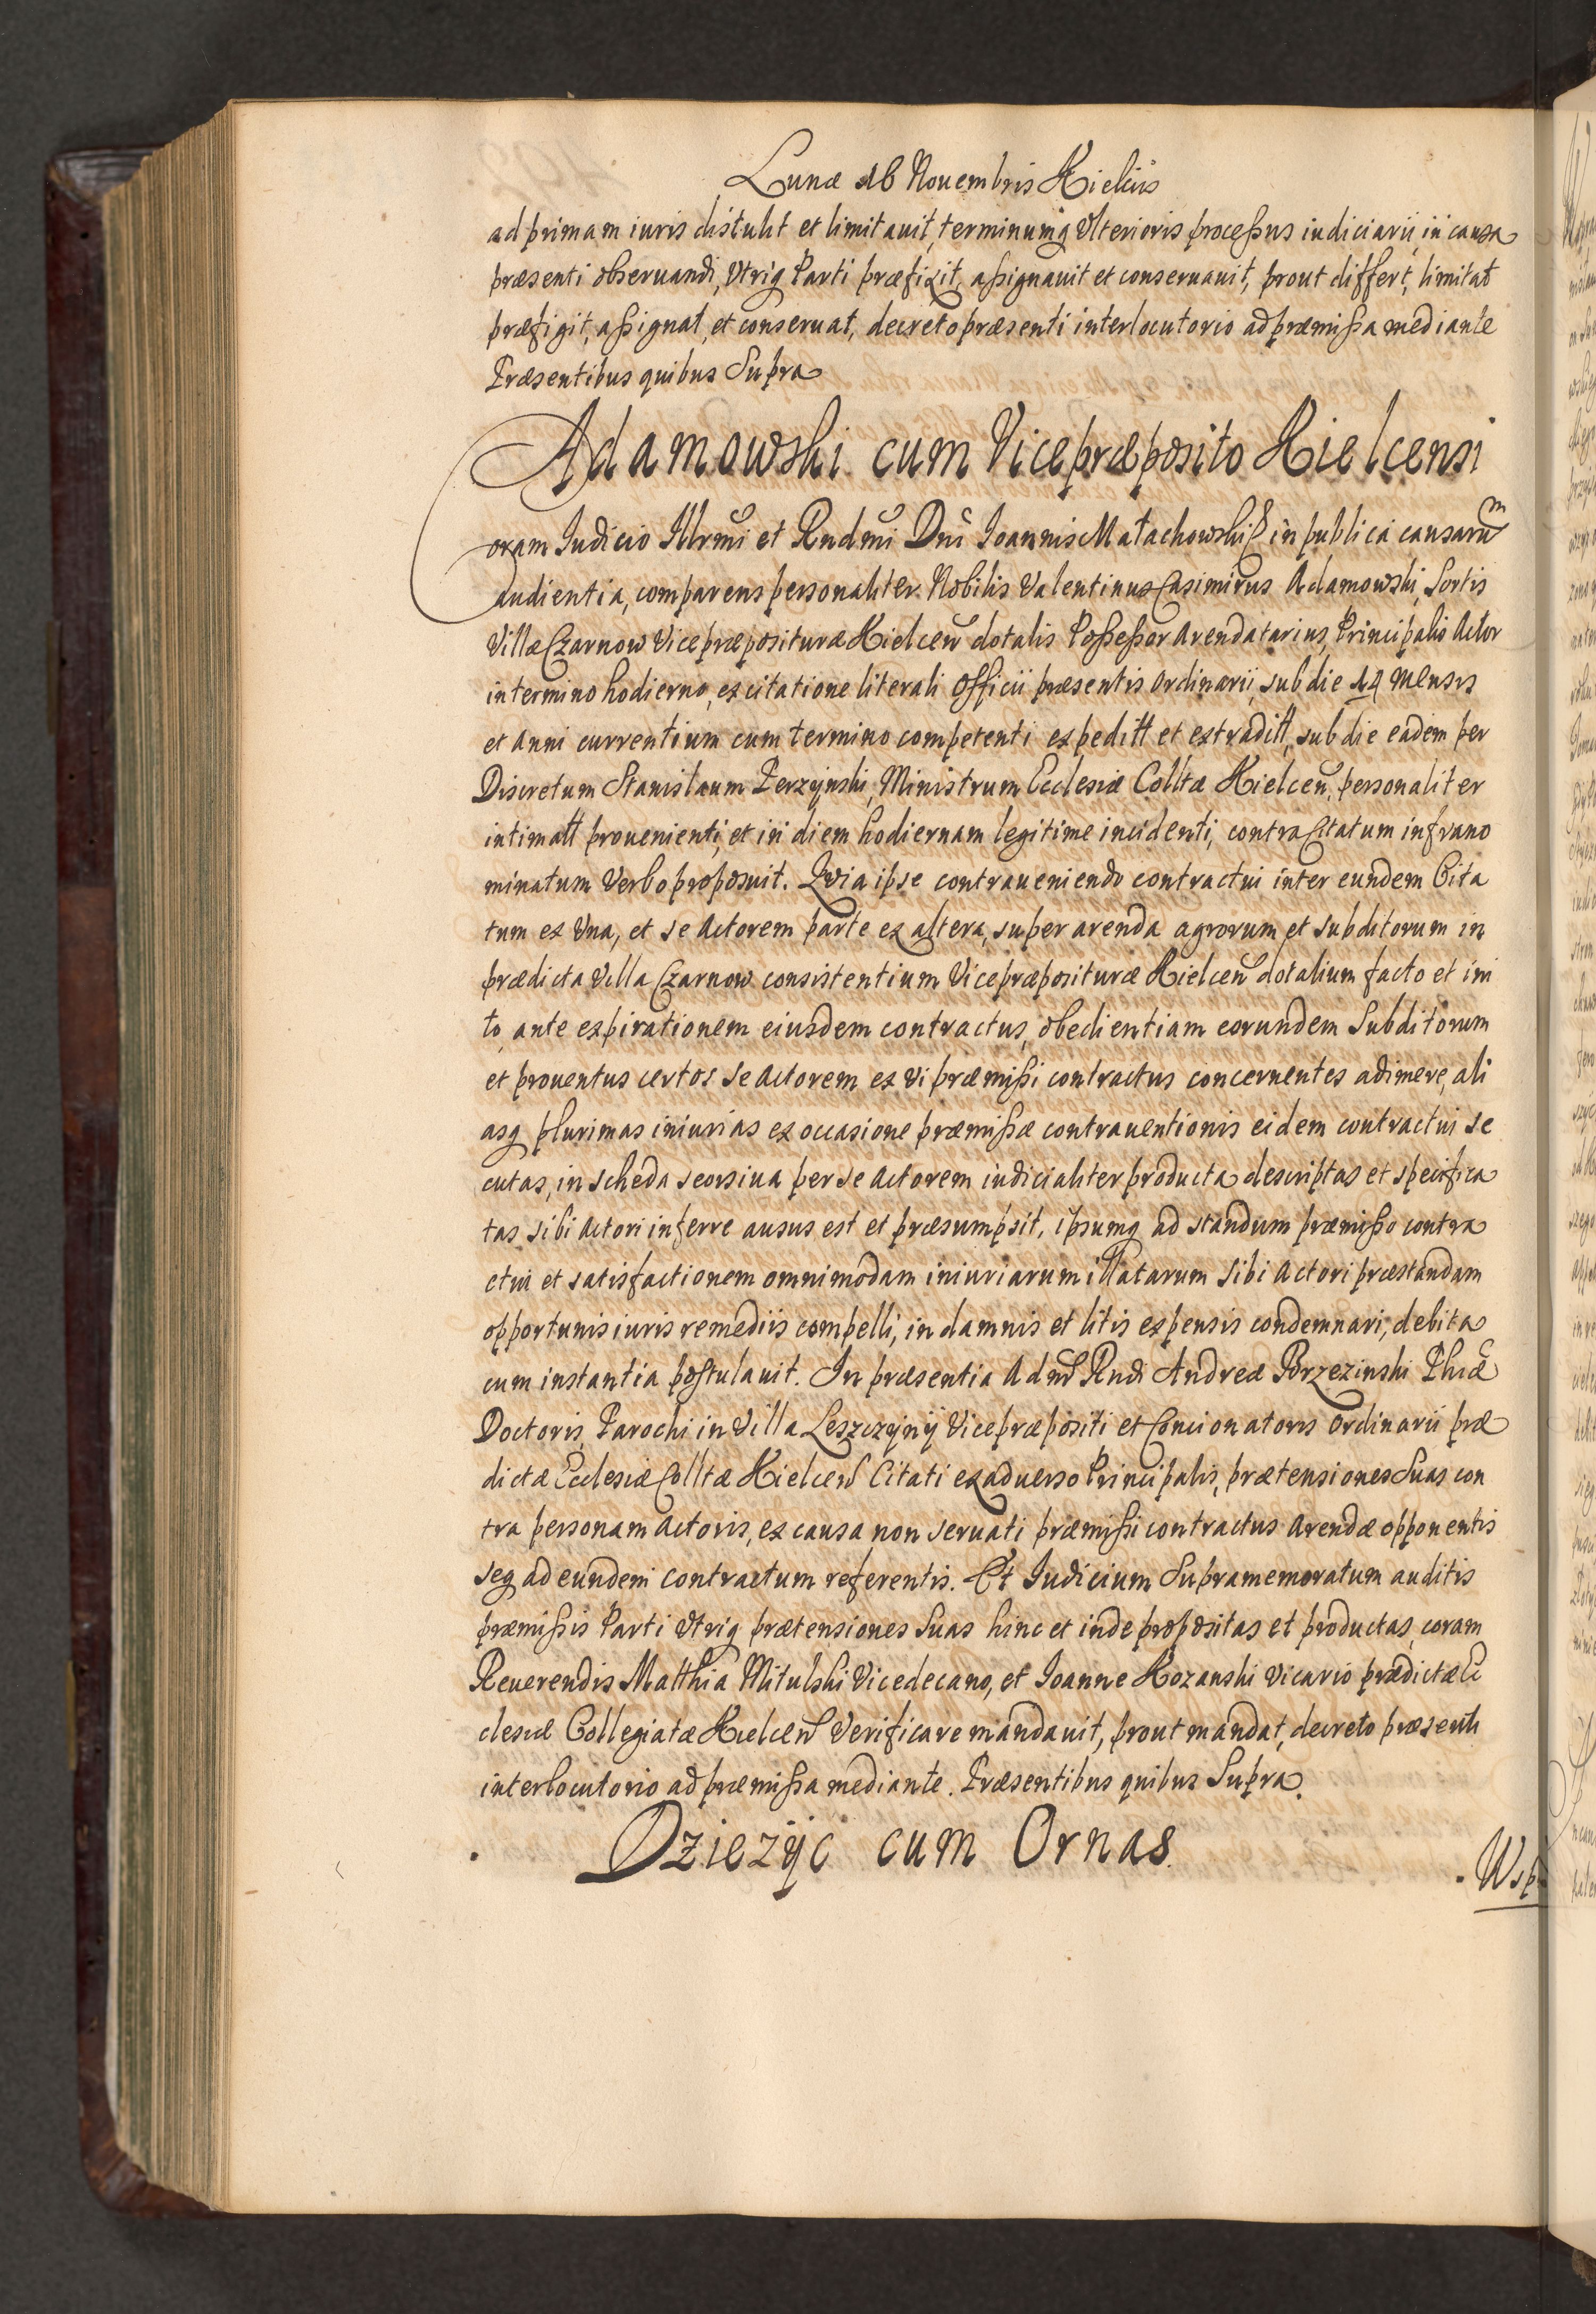 Lunæ 16 Nouembris Kielciis
ad primam iuris distulit et limitauit, terminumq Vlterioris processus iudiciarii in causa
præsenti obseruandi, Vtriq Parti præfixit, assignauit et conseruauit, prout differt, limitat
præfigit, assignat, et conseruat, decreto præsenti interlocutorio ad præmissa mediante
Præsentibus quibus Supra
Adamowski cum Vicepræposito Kielcensi
Coram Iudicio Illrmi et Rndmi Dni Ioannis Małachowski in publica causarum
audientia, comparens personaliter Nobilis Valentinus Casimirus Adamowski, Sortis
Villæ Czarnow Vicepræposituræ Kielcen dotalis Possessor Arendatarius, Principalis Actor
in termino hodierno, ex citatione literali Officii præsentis Ordinarii, sub die 14 Mensis
et Anni currentium cum termino competenti expeditt et extraditt, sub die eadem per
Discretum Stanislaum Perzynski, Ministrum Ecclesiæ Colltæ Kielcen, personaliter
intimatt prouenienti, et in diem hodiernam legitime incidenti, contra Citatum infrano
minatum Verbo proposuit. Qvia ipse contraueniendo contractui inter eundem Cita
tum ex Vna, et se Actorem parte ex altera, super arenda agrorum et subditorum in
prædicta Villa Czarnow consistentium Vicepræposituræ Kielcen dotalium facto et ini
to, ante expirationem eiusdem contractus, obedientiam eorundem Subditorum
et prouentus certos se Actorem ex Vi præmissi contractus concernentes adimere, ali
asq plurimas iniurias ex occasione præmissæ contrauentionis eidem contractui se
cutas, in scheda seorsiua per se Actorem iudicialiter producta descriptas et specifica
tas sibi Actori inferre ausus est et præsumpsit, ipsumq ad standum præmisso contra
ctui et satisfactionem omnimodam iniuriarum illatarum Sibi Actori præstandam
opportunis iuris remediis compelli, in damnis et litis expensis condemnari, debita
cum instantia postulauit. In præsentia Adm Rndi Andreæ Brzezinski Phiæ
Doctoris, Parochi in Villa Leszczyny Vicepræpositi et Concionatoris Ordinarii præ
dictæ Ecclesiæ Colltæ Kielcen Citati ex aduerso Principalis, prætensiones Suas con
tra personam Actoris, ex causa non seruati præmissi contractus Arendæ opponentis
seq ad eundem contractum referentis. Et Iudicium Supramemoratum auditis
præmissis Parti Vtriq prætensiones Suas hinc et inde propositas et productas, coram
Reuerendis Matthia Mitulski Vicedecano, et Ioanne Kozanski Vicario prædictæ Ec
clesiæ Collegiatæ Kielcen Verificare mandauit, prout mandat, decreto præsenti
interlocutorio ad præmissa mediante. Præsentibus quibus Supra.
Dziezyc cum Ornas.